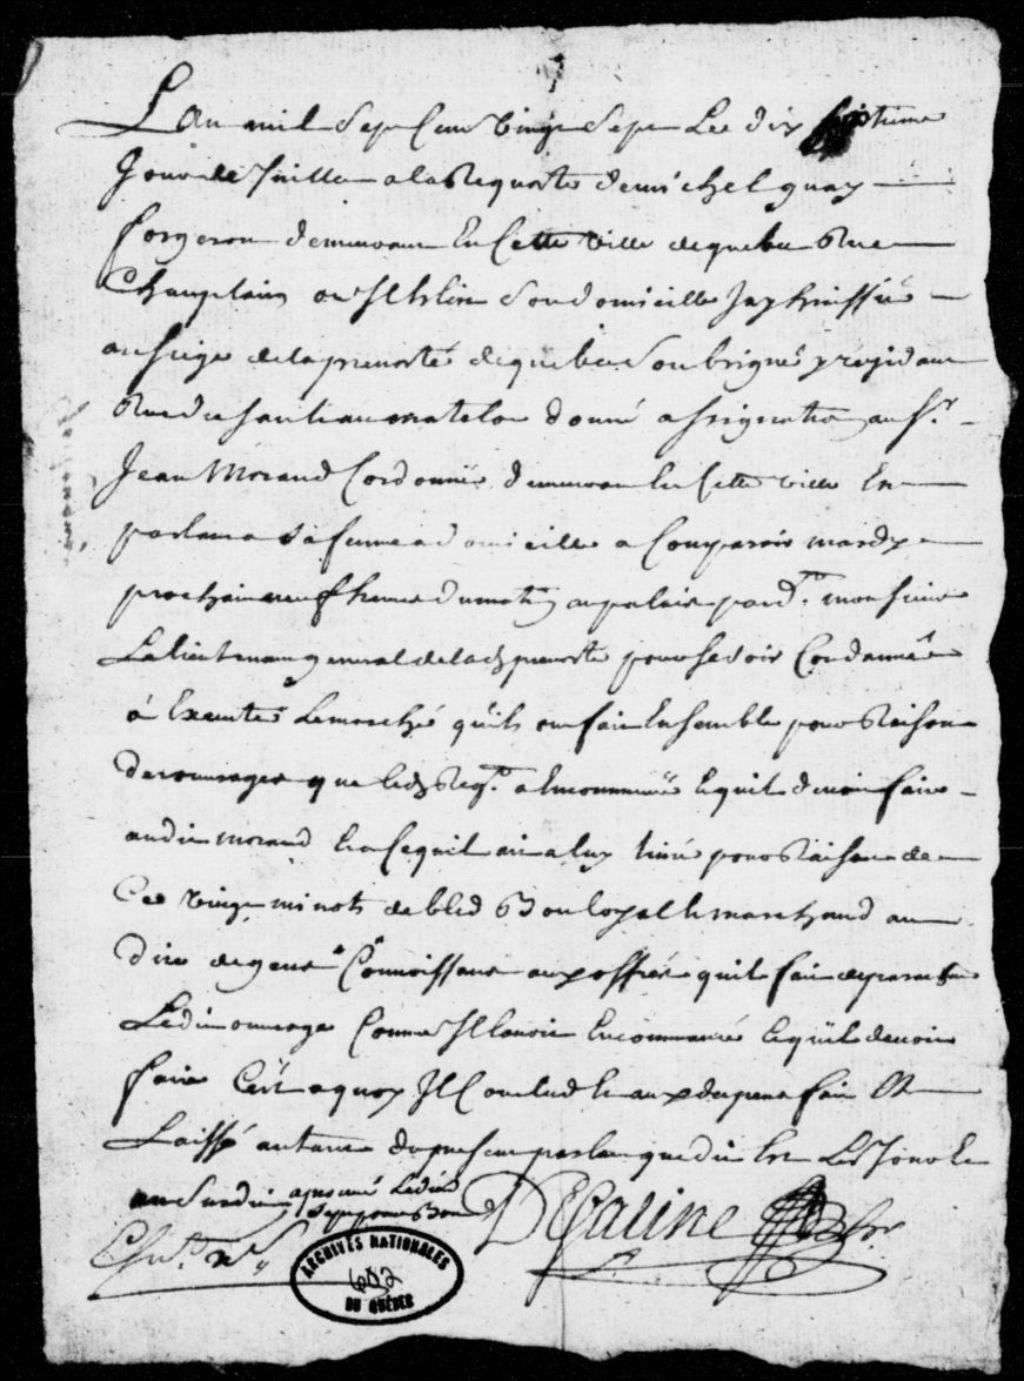 L'an mil Sept Cens Vingt Sept Le dix Septieme
Jour de Juillet a la Requeste de michel guay
forgeron demeurant En Cette Ville de quebec Rue
Champlain ou Il Eslire Son domicille Jay huissier
au siege de la prevosté de quebec Soubsigné y residant
Rue du sault au matelot donné assignation au Sr.
Jean Morand Cordonnier demeurant En Cette ville En
parlant a sa femme a domicille a Comparoir mardy
prochain neuf heures du matin au palais pard.t monsieur
Le lieutenant general de lad. prevosté pour se voir Condamner
á Executer Le marché quils ont fait Ensemble pour Raison
des ouvrages que led. Req.t a Encommencé Et quil devoit faire
audit morand Et a ce quil ait a luy livrer pour Raison de
Ce Vingt minots de bled Bon loyal Et marchand au
dire de gens Connoissans aux offres quil fait de parachever
Ledit ouvrage Comme Il lavoit Encommencé Et quil devoit
faire Cest a quoy Il Conclud Et aux depens fait Et
Laissé autant du present parlant que dit Est Led Jour Et
an Susdit aprouvé Ledit
Sept pour Bon
DeGaline hr.
ARCHIVES NATIONALES
DU QUÉBEC
602